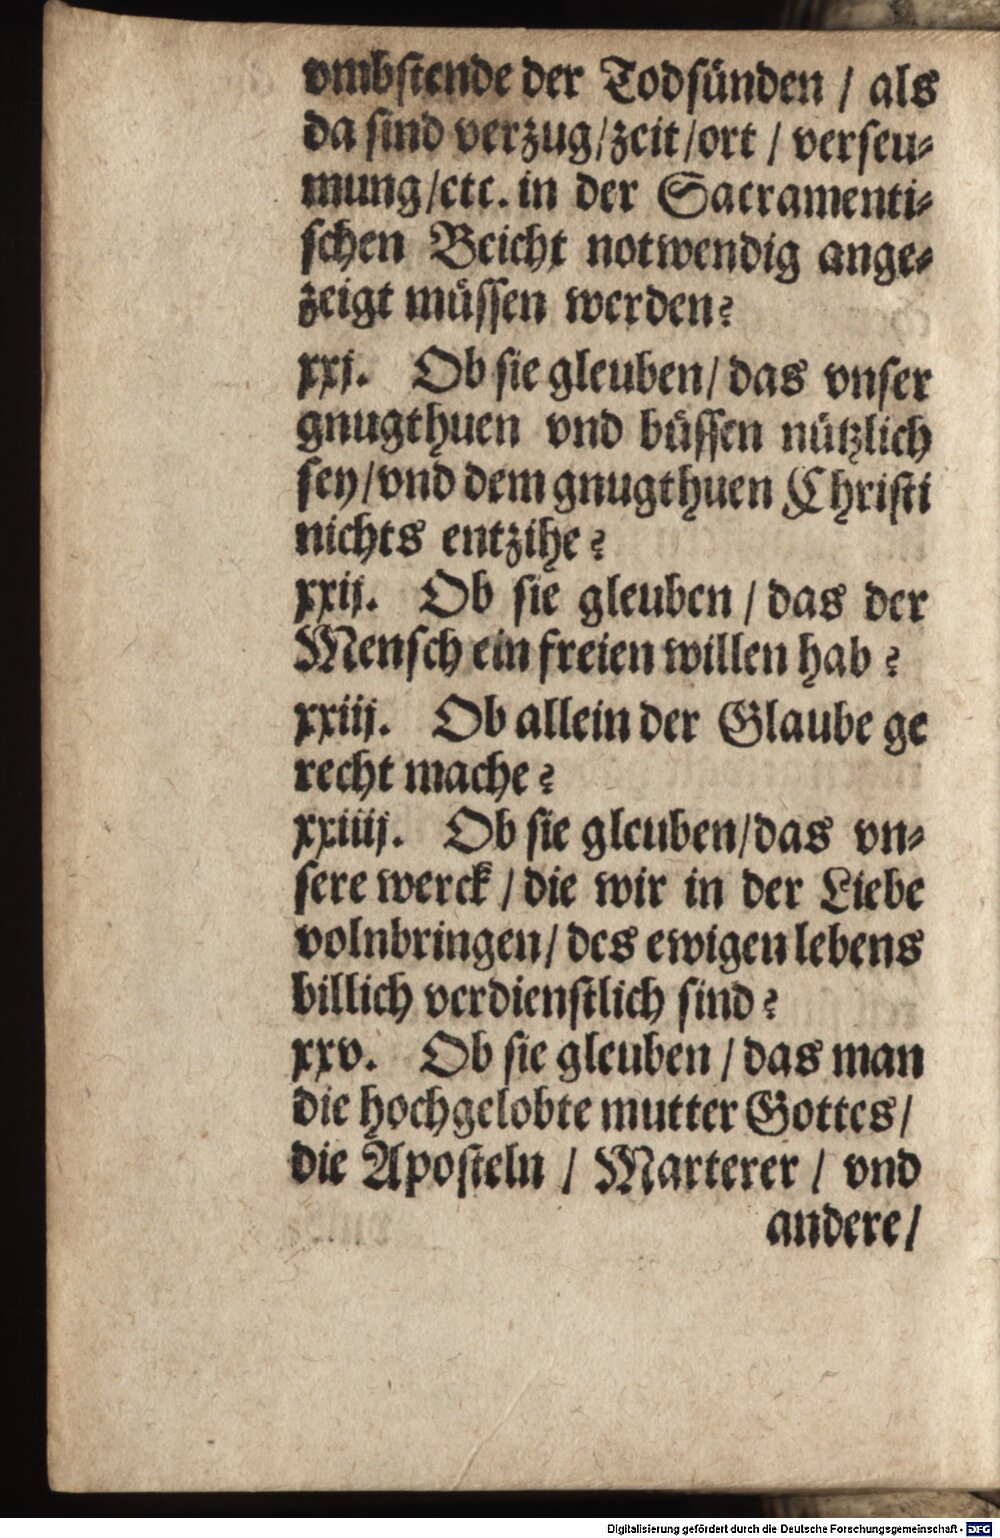 vmbstende der Todsünden / als
da sind verzug/zeit/ort / verseu⸗
mung/etc. in der Sacramenti⸗
schen Beicht notwendig ange⸗
zeigt müssen werden?
xxj. Ob sie gleuben/ das vnser
gnugthuen vnd büssen nützlich
sey/vnd dem gnugthuen Christi
nichts entzihe?
xxij. Ob sie gleuben / das der
Mensch ein freien willen hab?
xxiij. Ob allein der Glaube ge
recht mache?
xxiiij. Ob sie gleuben/das vn⸗
sere werck / die wir in der Liebe
volnbringen/ des ewigen lebens
billich verdienstlich sind?
xxv. Ob sie gleuben / das man
die hochgelobte mutter Gottes/
die Aposteln / Marterer / vnd
andere/
Digitalisierung gefördert durch die Deutsche Forschungsgemeinschaft - DFG